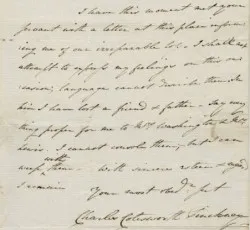 I have this moment met your
servant with a letter at this place inform
ing me of our irreparable loss. I shall not
attempt to express my feelings on this oc
casion; language cannot describe them. In
him I have lost a friend & father. Say every
thing proper for me to Mrs Washington & Mrs
Lewis. I cannot console them; but I can
weep with them. With sincere esteem & regard
I remain
Your most obedt servt
Charles Cotesworth Pinckney